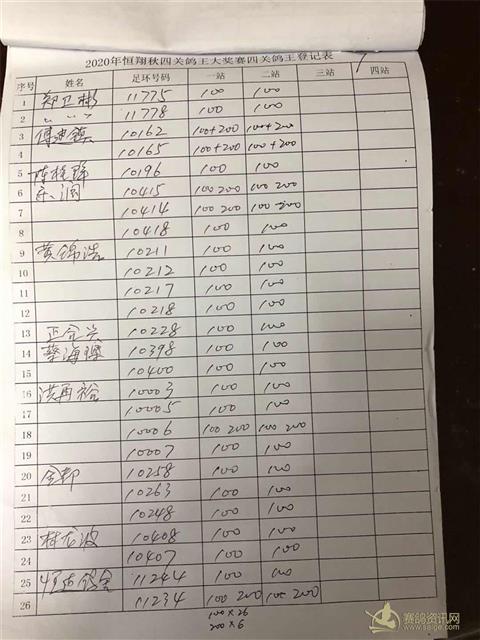 2020年恒翔秋四关鸽王大奖赛四关鸽王登记表
序号 姓名 足环号码 一站 二站 三站 四站
1 郑卫彬 11775 100 100
2 〃 〃 11778 100 100
3 10162 100+200 100+200
4 10165 100+200 100+200
5 10196 100 100
6 10415 100 200 100 200
7 10414 100 200 100 200
8 10418 100 100
9 黄锦浩 10211 100 100
10 10212 100 100
11 10217 100 100
12 10218 100 100
13 10228 100 100
14 蔡海 10398 100 100
15 10400 100 100
16 洪再裕 10003 100 100
17 10005 100 100
18 10006 100 200 100 200
19 10007 100 100
20 10258 100 100
21 10263 100 100
22 10248 100 100
23 林龙波 10408 100 100
24 10407 100 100
25 11244 100 100
26 11234 100 200 100 200
100×26
200×6
赛鸽资讯网
www.saige.com